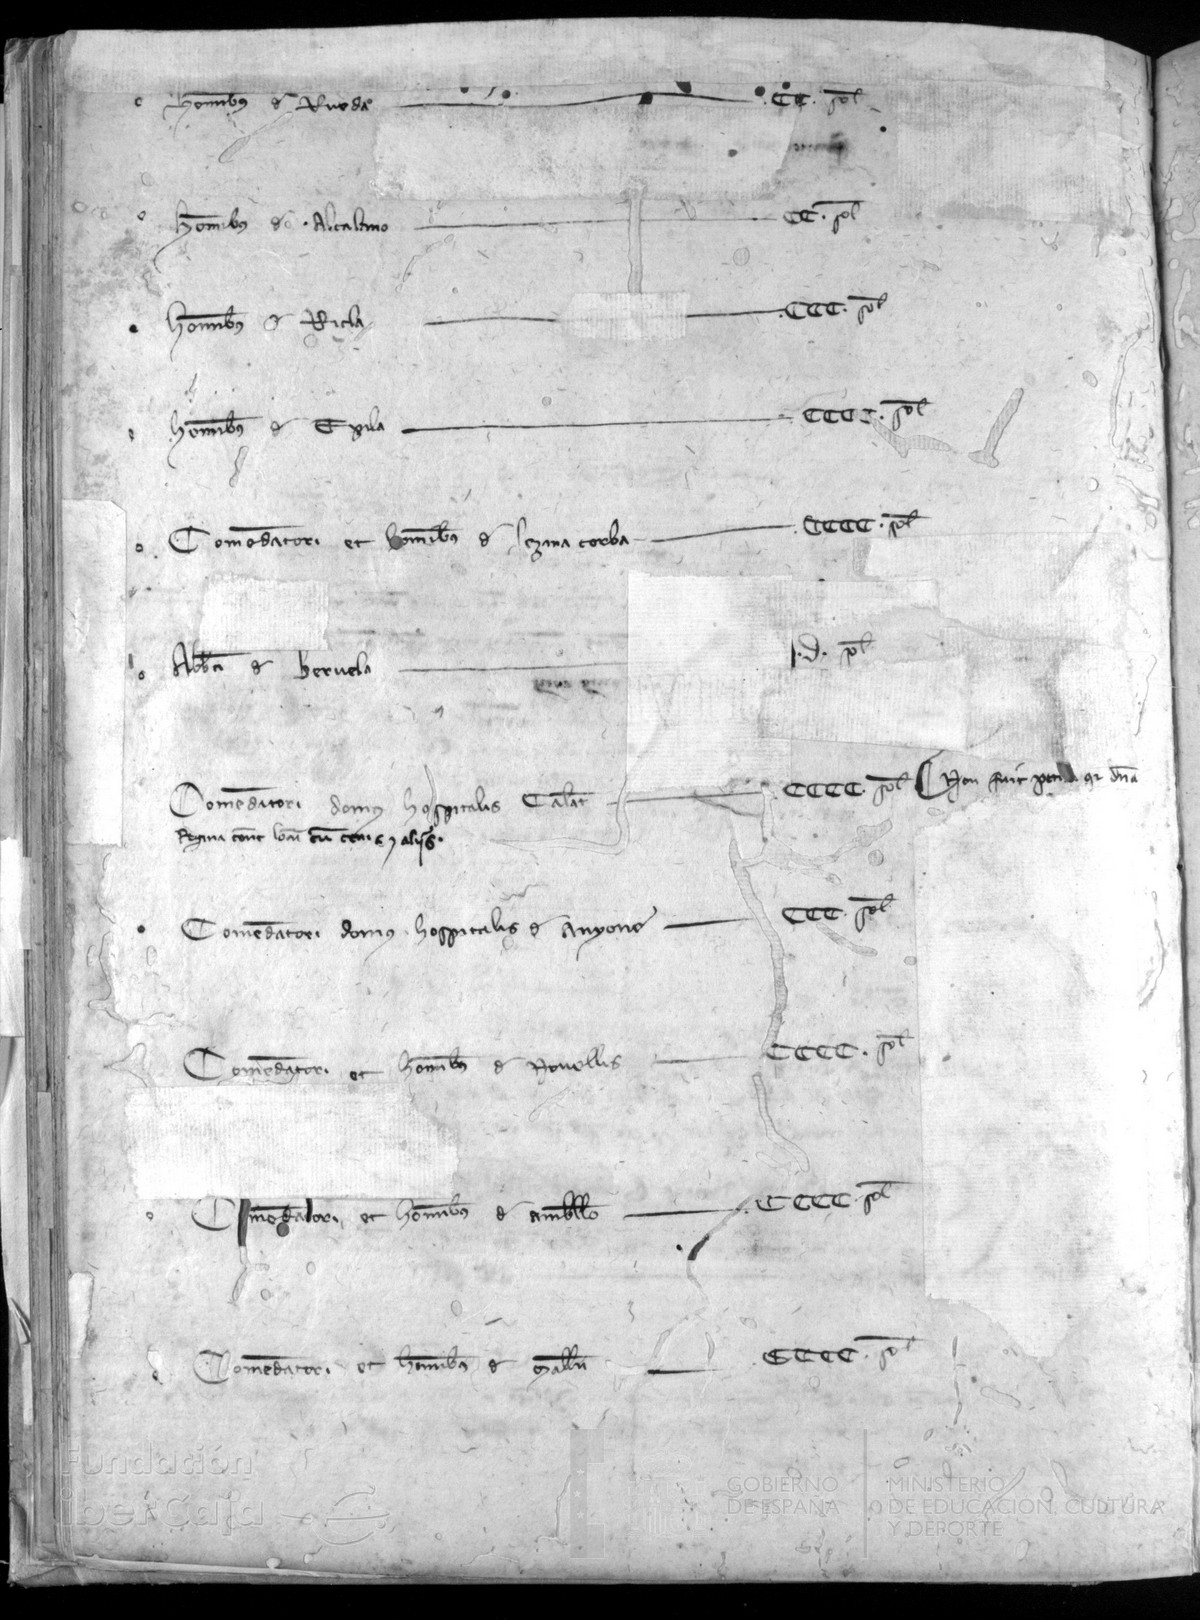 hominibus de Rueda CC. sol
hominibus de Alcalano CC. sol
hominibus de Ricla CCC. sol
hominibus de Epila CCCC. sol
Comendatori et hominibus de lezina corba CCCC. sol
Abbati de beruela D. sol
Comendatori domus hospitalis Calat CCCC. sol Non fuit quia dna
Regina tenet locum cum cenis et aliis.
Comendatori domus hospitalis de Anyone CCC. sol
Comendatori et hominibus de Novellis CCCC. sol
Comendatori et hominibus de ambello CCCC. sol
Comendatori et hominibus de mallen CCCC. sol
Fundación
iberCaja
GOBIERNO
DE ESPAÑA
MINISTERIO
DE EDUCACION, CULTURA
Y DEPORTE